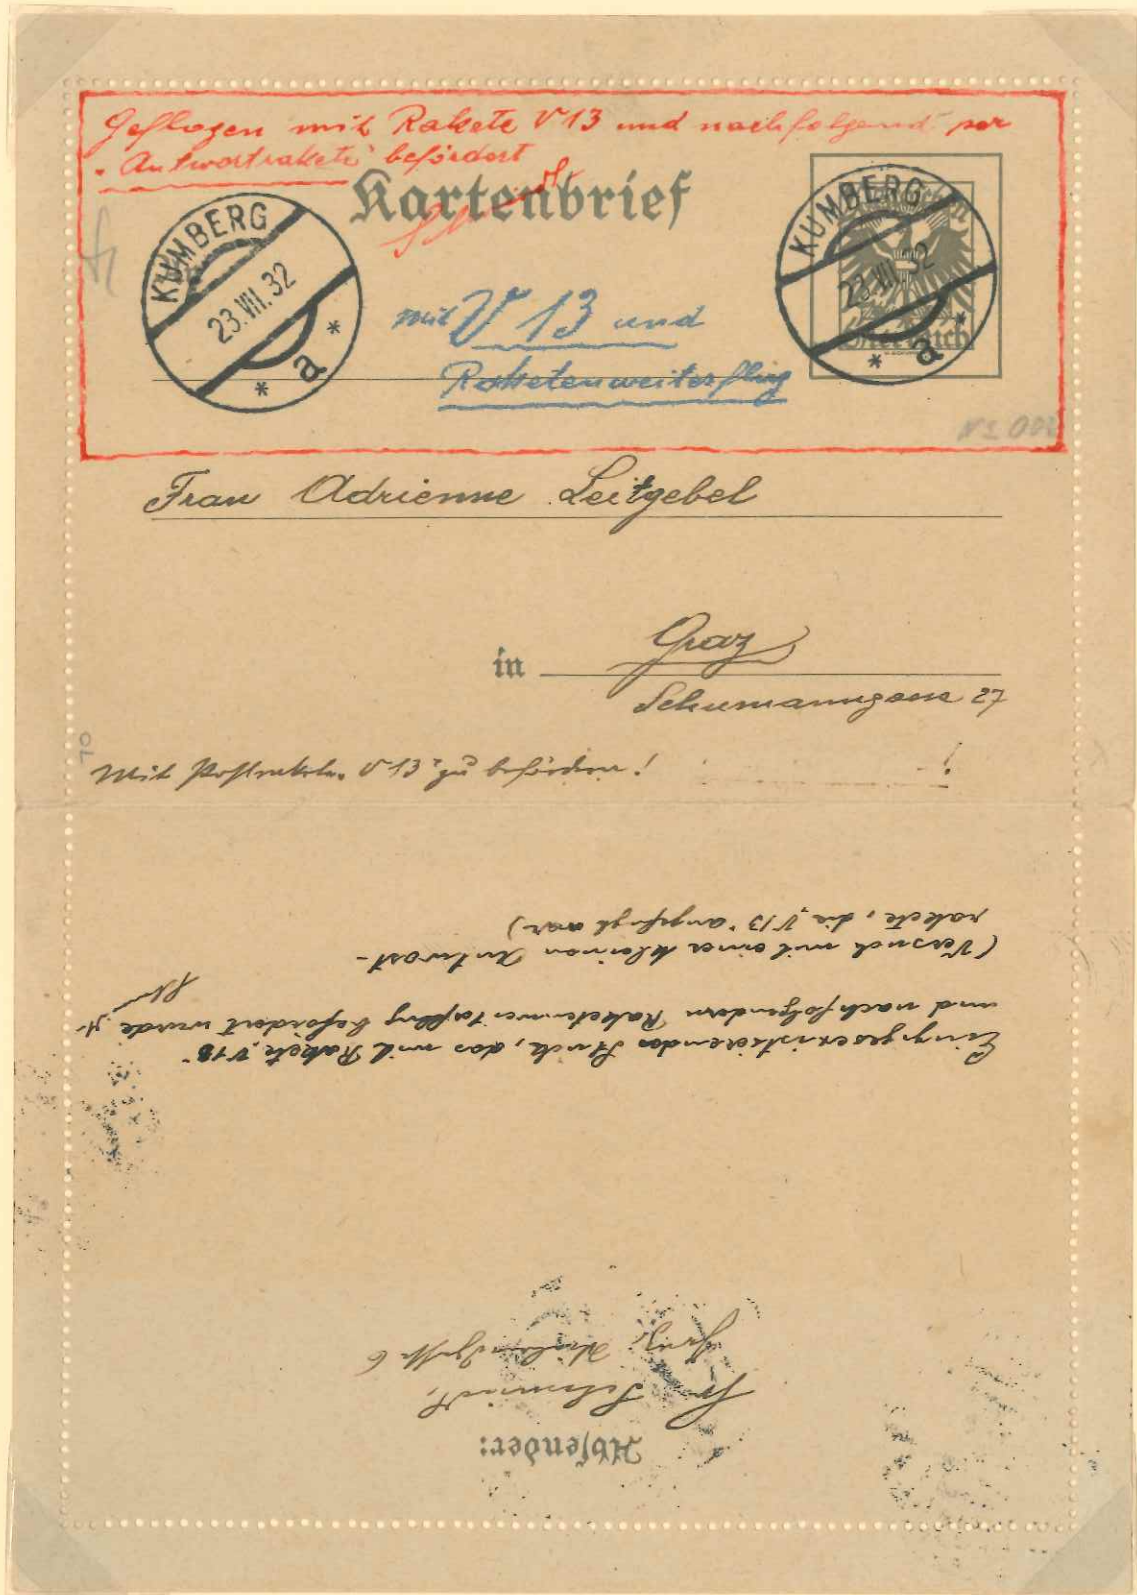 Geflogen mit Rakete V13 und nachfolgend per
"Antwortrakete" befördert
Kartenbrief
KUMBERG
23.VII.32
* a *
KUMBERG
23.VII.32
* a *
Österreich
mit V 13 und
Raketenweiterflug
Nº
Frau Adrienne Leitgebel
in Graz
Schumanngasse 27
Mit Postrakete V 13 zu befördern!
Einziges existierendes Stück, das mit Rakete „V 13"
und nachfolgendem Raketenweiterflug befördert wurde.
(Versuch mit einer kleinen Antwort-
rakete, die „V 13" angefügt war)
Absender:
Schmiedl,
Graz
6